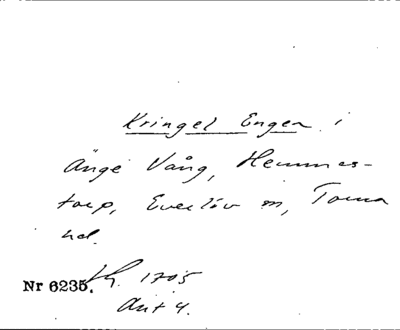 Kringel Engen i
Änge Vång, Hemmes-
torp, Everlöv sn, Torna
hd.
Nr 6235. 1705
Akt 4.